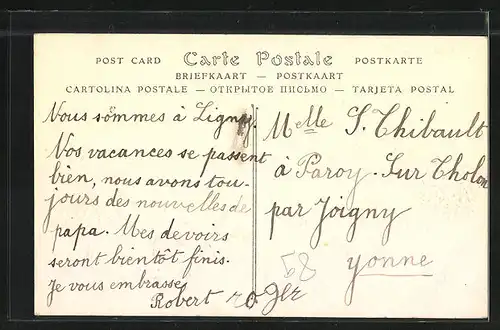 POST CARD Carte Postale POSTKARTE
BRIEFKAART — POSTKAART
CARTOLINA POSTALE — ОТКРЫТОЕ ПИСЬМО — TARJETA POSTAL
Nous sommes à Ligny.
Nos vacances se passent
bien, nous avons tou-
jours des nouvelles de
papa. Mes devoirs
seront bientôt finis.
Je vous embrasse
Robert
Melle S. Thibault
à Paroy-Sur Tholon
par Joigny
Yonne
58